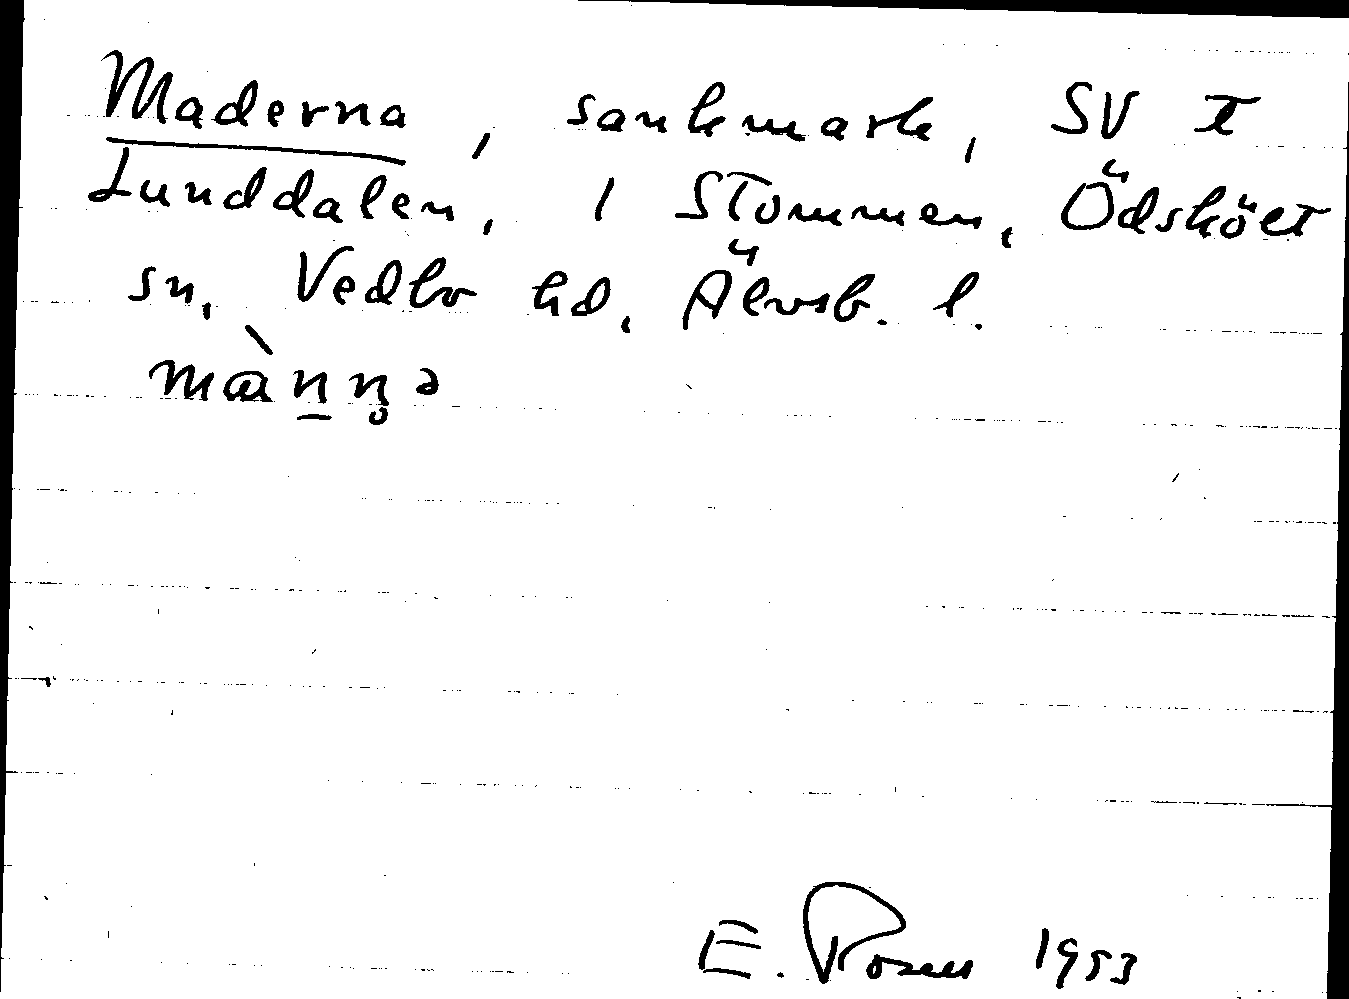 Maderna, sankmark, SV t
Lunddalen, 1 Stommen, Ödskölt
sn, Vedbo hd, Älvsb. l.
màn̠n̥ə
E. 1953